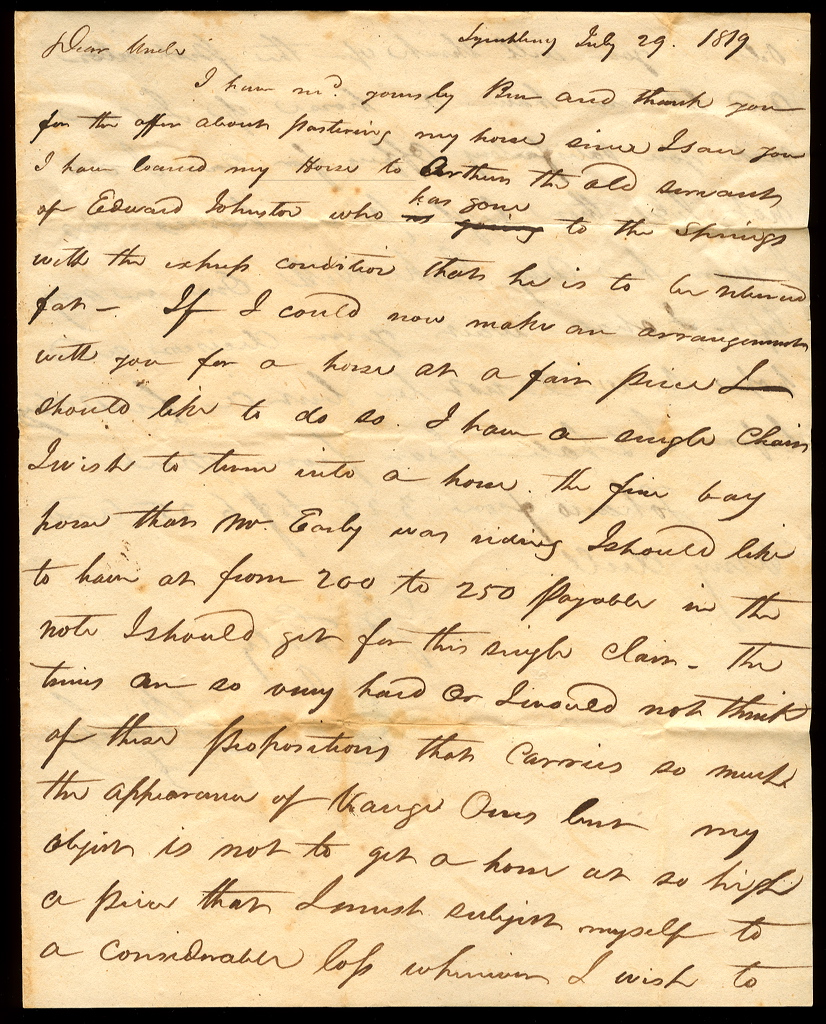 Lynchburg July 29. 1819
Dear Uncle
I have recd. yours by Ben and thank you
for the offer about pasturing my horse since I saw you
I have loaned my Horse to Arthur the old servant
of Edward Johnston who has gone is going to the Springs
with the express condition that he is to be returned
fat — If I could now make an arrangement
with you for a horse at a fair price I
should like to do so. I have a single Chair
I wish to turn into a horse. the fine bay
horse that Mr. Early was riding I should like
to have at from 200 to 250 Payable in the
note I should get for this single Chair — The
times are so very hard or I would not think
of these propositions that carries so much
the appearance of ones but my
object is not to get a horse at so high
a price that I must subject myself to
a considerable loss whenever I wish to